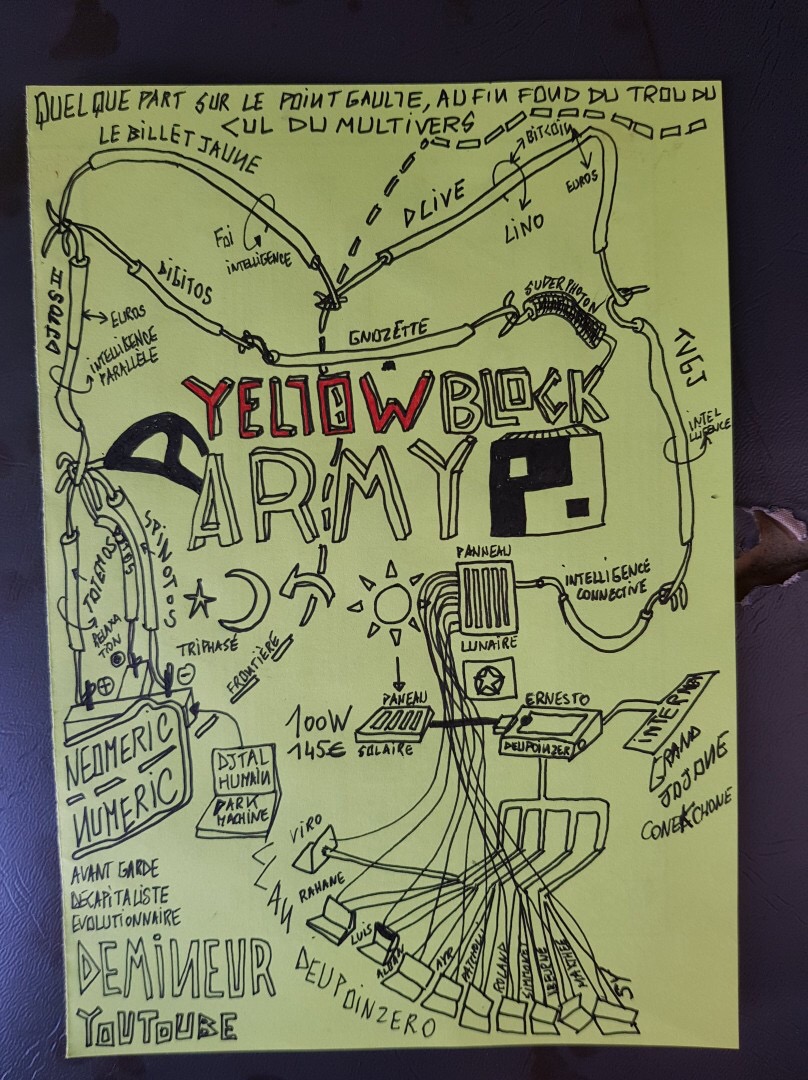 QUELQUE PART SUR LE POINT GAULTE, AU FIN FOND DU TROU DU
CUL DU MULTIVERS
LE BILLET JAUNE
BITCOIN
EUROS
DLIVE
LINO
FOI
INTELLIGENCE
DIGITOS
DJTOS III
EUROS
INTELLIGENCE
PARALLÈLE
GNOZETTE
SUPER PHOTON
TVGJ
INTEL
LIGENCE
YELLOW BLOCK
ARMY
SPINOTOS
TOTEMOS
RELAXA
TION
TRIPHASÉ
FRONTIÈRE
PANNEAU
LUNAIRE
INTELLIGENCE
CONNECTIVE
100W
145€
PANEAU
SOLAIRE
ERNESTO
DEUPOINZERO
INTERNET
GRAND
JOJONE
CONEKCHONE
+
-
NEOMERIC
NUMERIC
DJTAL
HUMAIN
DARK
MACHINE
AVANT GARDE
DÉCAPITALISTE
EVOLUTIONNAIRE
DEMINEUR
YOUTOUBE
CLAN
DEUPOINZERO
VIRO
RAHANE
LUIS
AYR
PATCHOULI
ROLAND
SIMMONET
SY